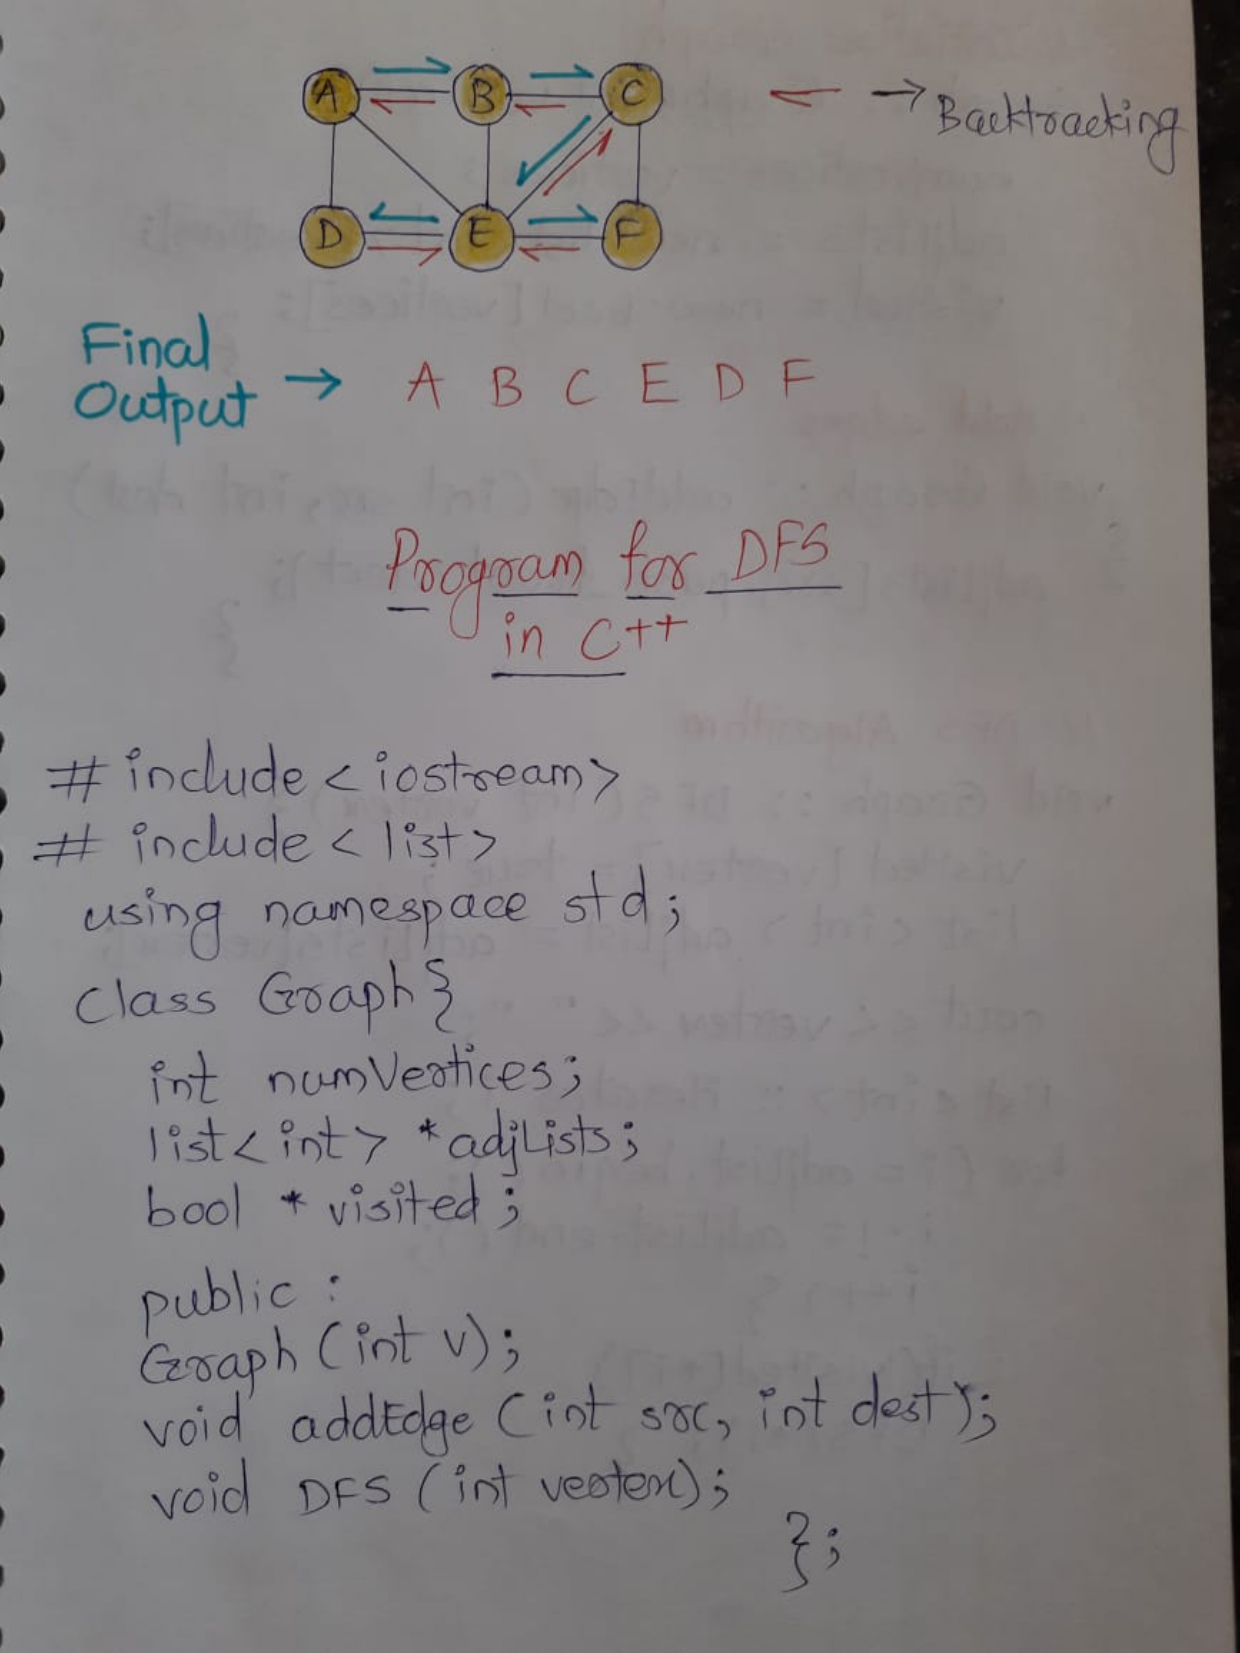 A B C
→ Backtracking
D E F
Final
Output → A B C E D F
Program for DFS
in C++
# include < iostream>
# include < list >
using namespace std;
class Graph {
int numVertices;
list < int > * adjLists;
bool * visited;
public :
Graph (int v);
void addEdge (int src, int dest);
void DFS (int vertex);
};